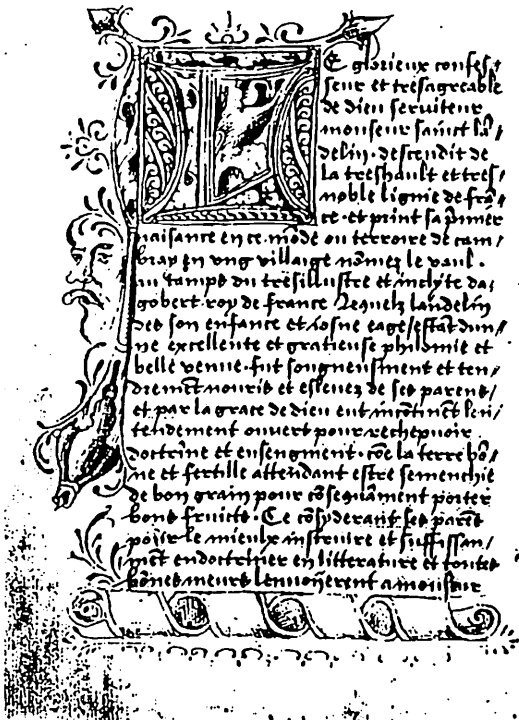 LE glorieux confes/
seur et tresagreable
de dieu serviteur
monseur sainct lā/
delin. descendit de
la treshault et tres/
noble lignie de frā/
ce. et print sa p̄mier
naisance en ce mōde ou terroire de cam/
bray En vng villaige nōmez le vaul.
au tamps du tresillustre et inclyte da/
gobert roy de france Lequelz landelin
des son enfance et iosne eage/estāt dun/
ne excellente et gratieuse philomie et
belle venue. fut songneusment et ten/
dremēt nouris et esleuez de ses parens/
et par la grace de dieu eut incōtinēt len/
tendement ouuert pour rechepuoir
doctrine et ensengment. cōe la terre bō/
ne et fertille attendant estre semenchie
de bon grain pour cōsequāment porter
bons fruicts. Ce cōsyderant ses parēs
pour le mieulx instruire et suffissan/
mēt endoctriner en litterature et toutes
bōnes meurs lenuoyerent a monseur